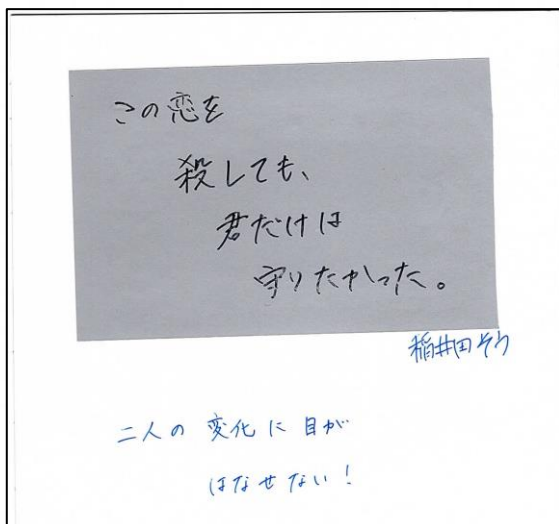 この恋を
殺しても、
君だけは
守りたかった。
稲井田そう
二人の変化に目が
はなせない!